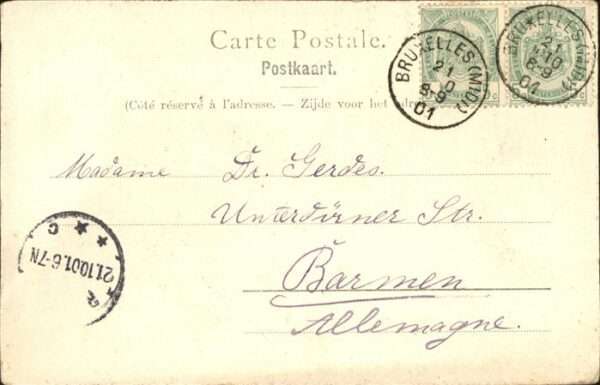 Carte Postale.
Postkaart.
(Côté réservé à l'adresse. — Zijde voor het
BRUXELLES (MIDI)
21
8-9
01
BRUXELLES (MIDI)
21
10
01
Madame Dr. Gerdes.
Unterdörner Str.
Barmen
Allemagne.
21.10.01.6-7N
C